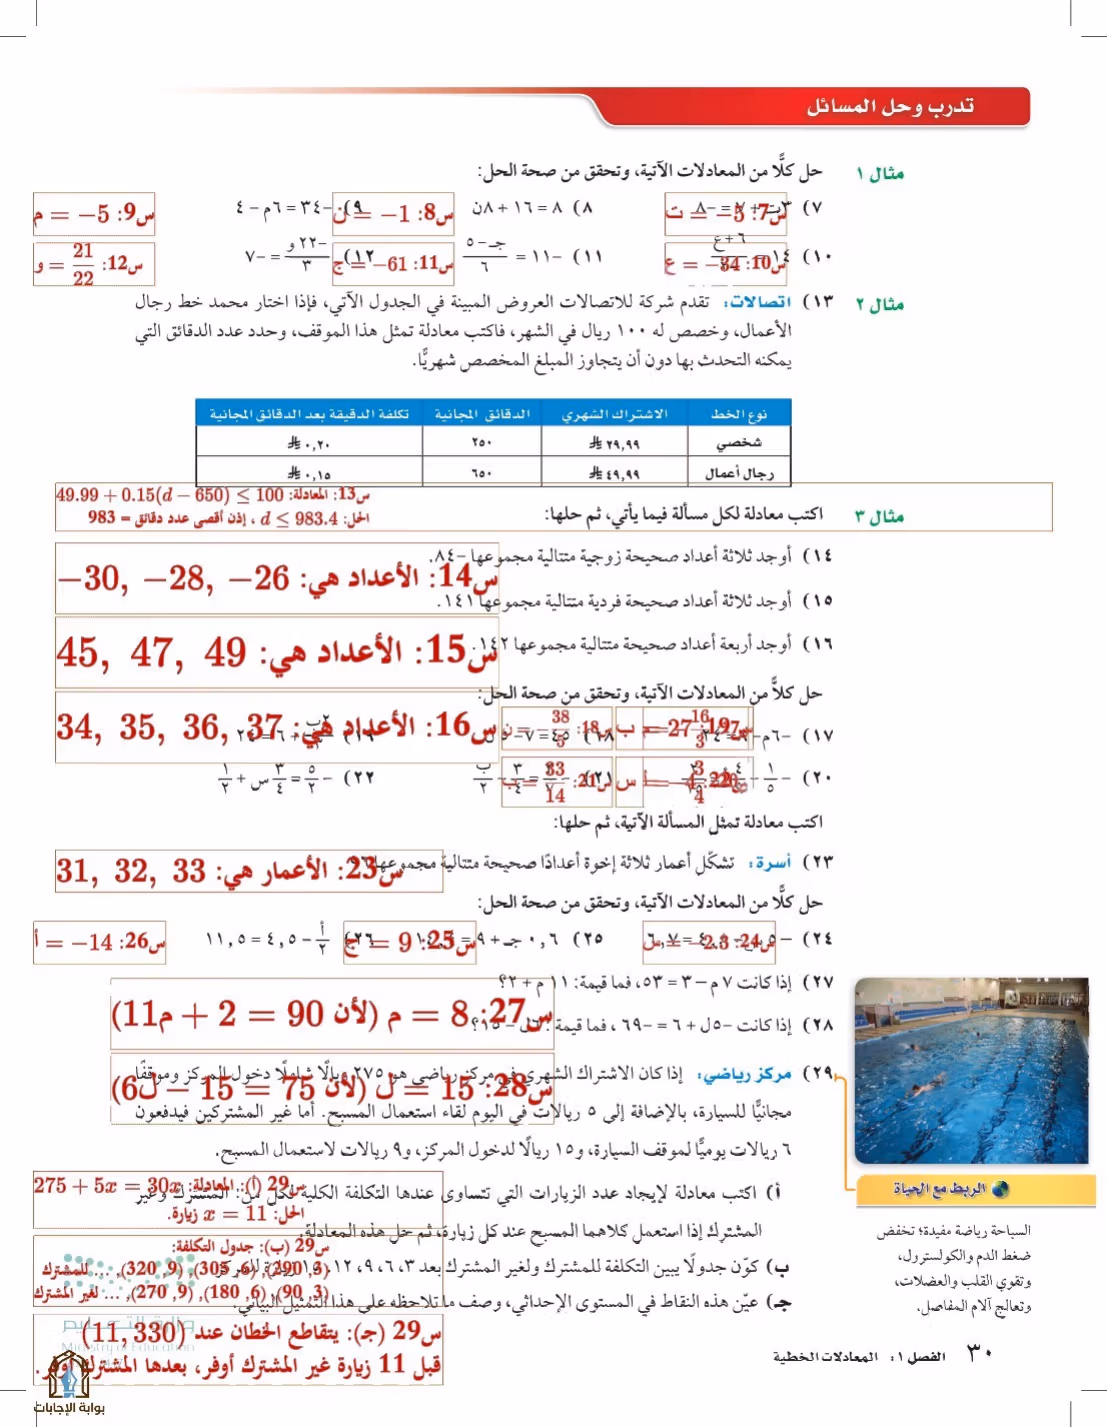 تدرب وحل المسائل
مثال ١
حل كلًّا من المعادلات الآتية، وتحقق من صحة الحل:
٧) ٣ت + ٧ = −٨
س7: ت = −5
٨) ٨ = ١٦ + ٨ن
س8: ن = −1
٩) −٣٤ = ٦م − ٤
س9: م = −5
١٠) ١٤ =
س10: ع = −34
١١) −١١ = (جـ − ٥)/٦
س11: ج = −61
١٢) −٢٢و/٣ = −٧
س12: و = 21/22
مثال ٢
١٣) اتصالات: تقدم شركة للاتصالات العروض المبينة في الجدول الآتي، فإذا اختار محمد خط رجال
الأعمال، وخصص له ١٠٠ ريال في الشهر، فاكتب معادلة تمثل هذا الموقف، وحدد عدد الدقائق التي
يمكنه التحدث بها دون أن يتجاوز المبلغ المخصص شهريًّا.
نوع الخط	الاشتراك الشهري	الدقائق المجانية	تكلفة الدقيقة بعد الدقائق المجانية
شخصي	٢٩,٩٩	٢٥٠	٠,٢٠
رجال أعمال	٤٩,٩٩	٦٥٠	٠,١٥
س13: المعادلة: 49.99 + 0.15(d − 650) ≤ 100
الحل: d ≤ 983.4 ، إذن أقصى عدد دقائق = 983
مثال ٣
اكتب معادلة لكل مسألة فيما يأتي، ثم حلها:
١٤) أوجد ثلاثة أعداد صحيحة زوجية متتالية مجموعها −٨٤.
س14: الأعداد هي: −30, −28, −26
١٥) أوجد ثلاثة أعداد صحيحة فردية متتالية مجموعها ١٤١.
س15: الأعداد هي: 45, 47, 49
١٦) أوجد أربعة أعداد صحيحة متتالية مجموعها ١٤٢.
س16: الأعداد هي: 34, 35, 36, 37
حل كلاًّ من المعادلات الآتية، وتحقق من صحة الحل:
١٧) −٦م −
١٨) ٤٥ = ٧ −
س18: ن = −38/5
٢٠) −١/٥
س21: ب = 33/14
٢٢) −٥/٢ = ٣/٤ س + ١/٢
اكتب معادلة تمثل المسألة الآتية، ثم حلها:
٢٣) أسرة: تشكّل أعمار ثلاثة إخوة أعدادًا صحيحة متتالية مجموعها ٩٦.
س23: الأعمار هي: 31, 32, 33
حل كلًّا من المعادلات الآتية، وتحقق من صحة الحل:
٢٤) −
س24: س = −2.3
٢٥) ٠,٦ جـ + ٩ =
س25: ج = 9
٢٦) أ/٢ − ٤,٥ = ١١,٥
س26: أ = −14
٢٧) إذا كانت ٧ م − ٣ = ٥٣، فما قيمة: ١١ م + ٢؟
س27: م = 8 (لأن 11م + 2 = 90)
٢٨) إذا كانت −٥ل + ٦ = −٦٩ ، فما قيمة: ٦ل − ١٥؟
س28: ل = 15 (لأن 6ل − 15 = 75)
٢٩) مركز رياضي: إذا كان الاشتراك الشهري في مركز رياضي هو ٢٧٥ ريالًا شاملًا دخول المركز وموقفًا
مجانيًّا للسيارة، بالإضافة إلى ٥ ريالات في اليوم لقاء استعمال المسبح. أما غير المشتركين فيدفعون
٦ ريالات يوميًّا لموقف السيارة، و١٥ ريالًا لدخول المركز، و٩ ريالات لاستعمال المسبح.
أ) اكتب معادلة لإيجاد عدد الزيارات التي تتساوى عندها التكلفة الكلية لكل من: المشترك وغير
المشترك إذا استعمل كلاهما المسبح عند كل زيارة، ثم حل هذه المعادلة.
س29 (أ): المعادلة: 275 + 5x = 30x
الحل: x = 11 زيارة.
ب) كوّن جدولًا يبين التكلفة للمشترك ولغير المشترك بعد ٣، ٦، ٩، ١٢، ١٥ زيارة للمركز.
س29 (ب): جدول التكلفة:
(3, 290), (6, 305), (9, 320), ... للمشترك
(3, 90), (6, 180), (9, 270), ... لغير المشترك
جـ) عيّن هذه النقاط في المستوى الإحداثي، وصف ما تلاحظه على هذا التمثيل البياني.
س29 (جـ): يتقاطع الخطان عند (11, 330)
قبل 11 زيارة غير المشترك أوفر، بعدها المشترك أوفر.
الربط مع الحياة
السباحة رياضة مفيدة؛ تخفض
ضغط الدم والكولسترول،
وتقوي القلب والعضلات،
وتعالج آلام المفاصل.
وزارة التعليم
Ministry of Education
٣٠ الفصل ١: المعادلات الخطية
بوابة الإجابات